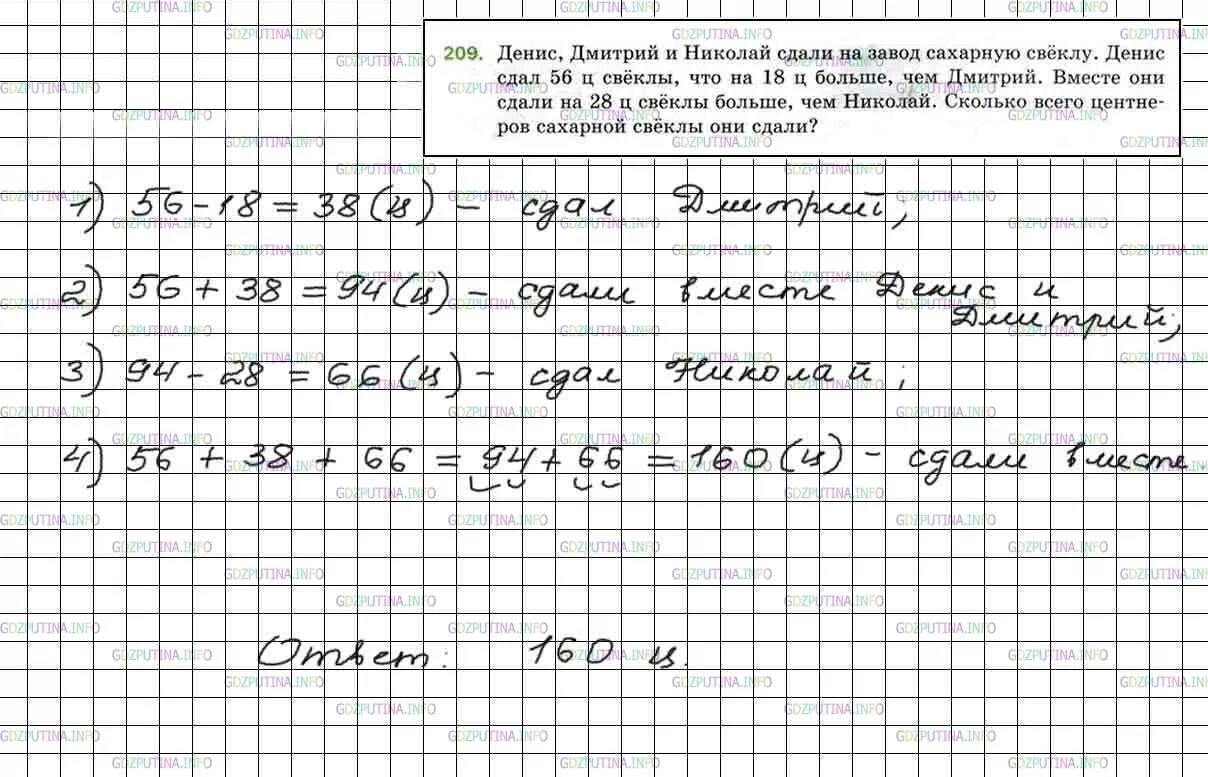 209. Денис, Дмитрий и Николай сдали на завод сахарную свёклу. Денис
сдал 56 ц свёклы, что на 18 ц больше, чем Дмитрий. Вместе они
сдали на 28 ц свёклы больше, чем Николай. Сколько всего центне-
ров сахарной свёклы они сдали?
1) 56 - 18 = 38 (ц) - сдал Дмитрий;
2) 56 + 38 = 94 (ц) - сдали вместе Денис и
Дмитрий;
3) 94 - 28 = 66 (ц) - сдал Николай;
4) 56 + 38 + 66 = 94 + 66 = 160 (ц) - сдали вместе.
Ответ: 160 ц.
GDZPUTINA.INFO